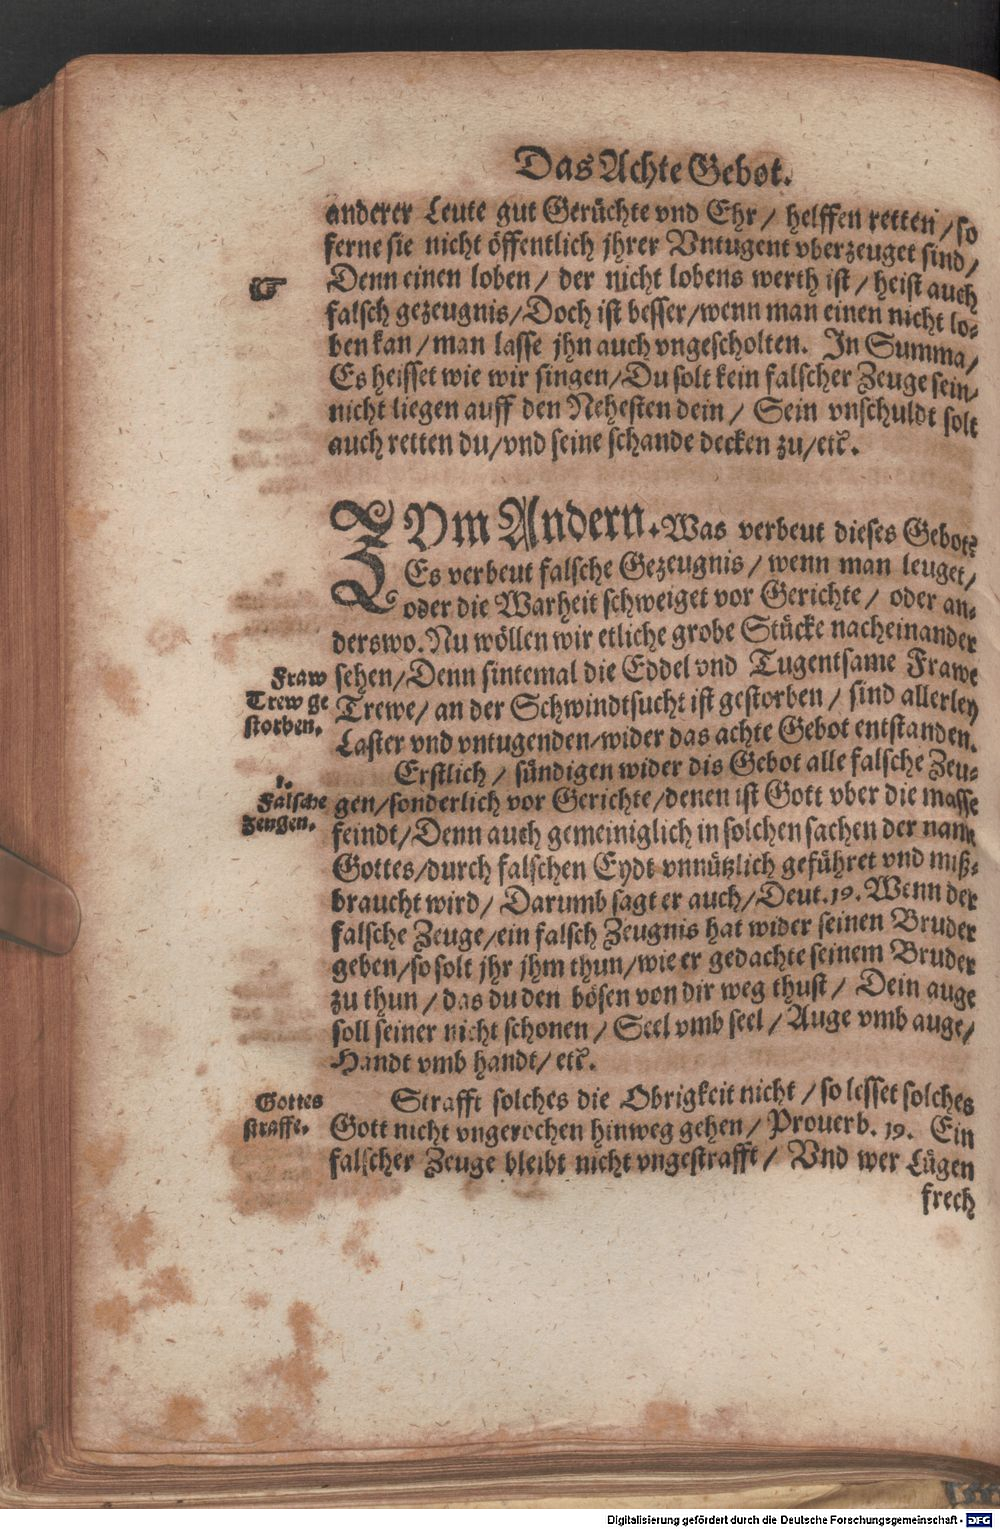 Das Achte Gebot.
anderer Leute gut Gerüchte vnd Ehr / helffen retten / so
ferne sie nicht öffentlich jhrer Vntugent vberzeuget sind /
☞
Denn einen loben / der nicht lobens werth ist / heist auch
falsch gezeugnis / Doch ist besser / wenn man einen nicht lo-
ben kan / man lasse jhn auch vngescholten. In Summa /
Es heisset wie wir singen / Du solt kein falscher Zeuge sein /
nicht liegen auff den Nehesten dein / Sein vnschuldt solt
auch retten du / vnd seine schande decken zu / etc.
ZVm Andern. Was verbeut dieses Gebot?
Es verbeut falsche Gezeugnis / wenn man leuget /
oder die Warheit schweiget vor Gerichte / oder an-
derswo. Nu wöllen wir etliche grobe Stücke nacheinander
Fraw
Trew ge
storben.
sehen / Denn sintemal die Eddel vnd Tugentsame Frawe
Trewe / an der Schwindtsucht ist gestorben / sind allerley
Laster vnd vntugenden / wider das achte Gebot entstanden.
1.
Falsche
Zeugen.
Erstlich / sündigen wider dis Gebot alle falsche Zeu-
gen / sonderlich vor Gerichte / denen ist Gott vber die masse
feindt / Denn auch gemeiniglich in solchen sachen der name
Gottes / durch falschen Eydt vnnützlich geführet vnd miß-
braucht wird / Darumb sagt er auch / Deut. 19. Wenn der
falsche Zeuge / ein falsch Zeugnis hat wider seinen Bruder
geben / so solt jhr jhm thun / wie er gedachte seinem Bruder
zu thun / das du den bösen von dir weg thust / Dein auge
soll seiner nicht schonen / Seel vmb seel / Auge vmb auge /
Handt vmb handt / etc.
Gottes
straffe.
Strafft solches die Obrigkeit nicht / so lesset solches
Gott nicht vngerochen hinweg gehen / Prouerb. 19. Ein
falscher Zeuge bleibt nicht vngestrafft / Vnd wer Lügen
frech
Digitalisierung gefördert durch die Deutsche Forschungsgemeinschaft - DFG